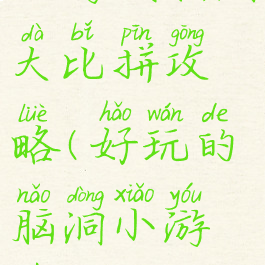 dà bǐ pīn gōng
大比拼攻
lüè hǎo wán de
略(好玩的
nǎo dòng xiǎo yóu
脑洞小游